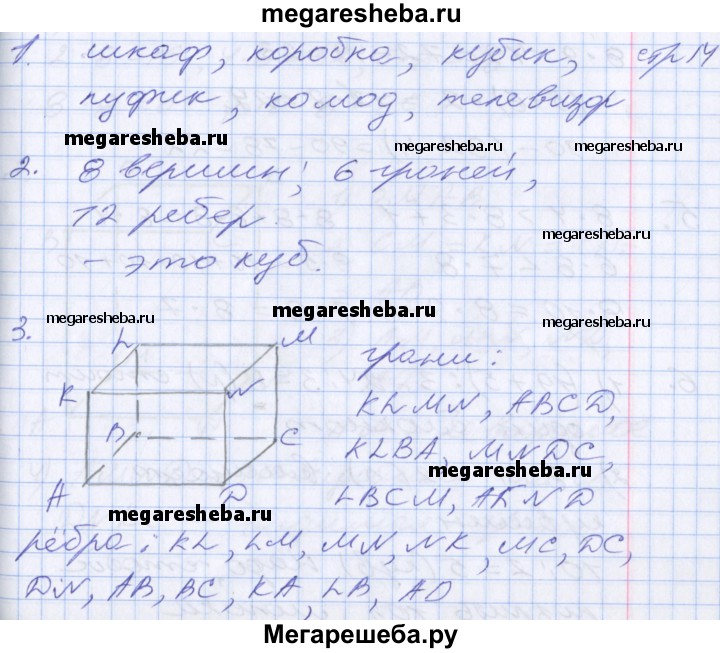 megaresheba.ru
1. шкаф, коробка, кубик, стр 14
пуфик, комод, телевизор
megaresheba.ru
megaresheba.ru
2. 8 вершин; 6 граней,
12 ребер
megaresheba.ru
- это куб.
megaresheba.ru
megaresheba.ru
megaresheba.ru
3.
L M
K N
B C
A D
грани:
KLMN, ABCD,
KLBA, MNDC,
megaresheba.ru
LBCM, AKND
megaresheba.ru
рёбра: KL, LM, MN, NK, MC, DC,
DN, AB, BC, KA, LB, AD
Мегарешеба.ру